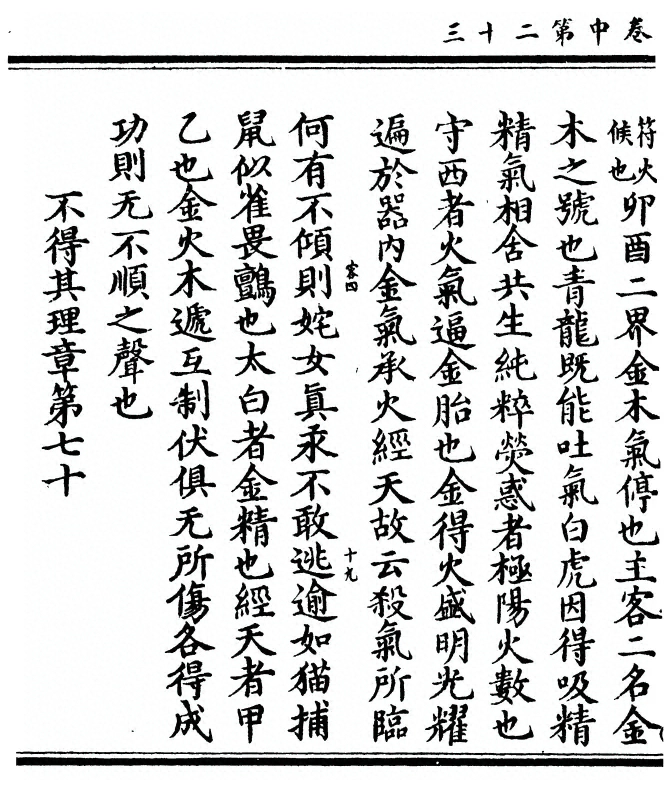 卷中第二十三
符火
候也
卯酉二界金木氣停也主客二名金
木之號也青龍既能吐氣白虎因得吸精
精氣相含共生純粹熒惑者極陽火數也
守西者火氣逼金胎也金得火盛明光耀
遍於器內金氣承火經天故云殺氣所臨
容四
十九
何有不傾則姹女真汞不敢逃逾如猫捕
鼠似雀畏鸇也太白者金精也經天者甲
乙也金火木遞互制伏俱无所傷各得成
功則无不順之聲也
不得其理章第七十